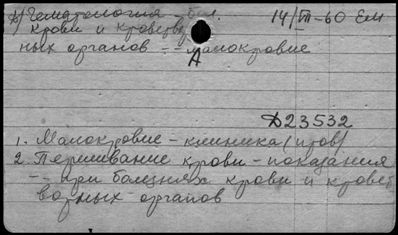 Гематология бол. 14/III-60 Ем
крови и кроветвор
ных органов -- малокровие
А
Д23532
1. Малокровие - клиника (
2. Переливание крови - показания
-- при болезнях крови и кровет
ворных органов